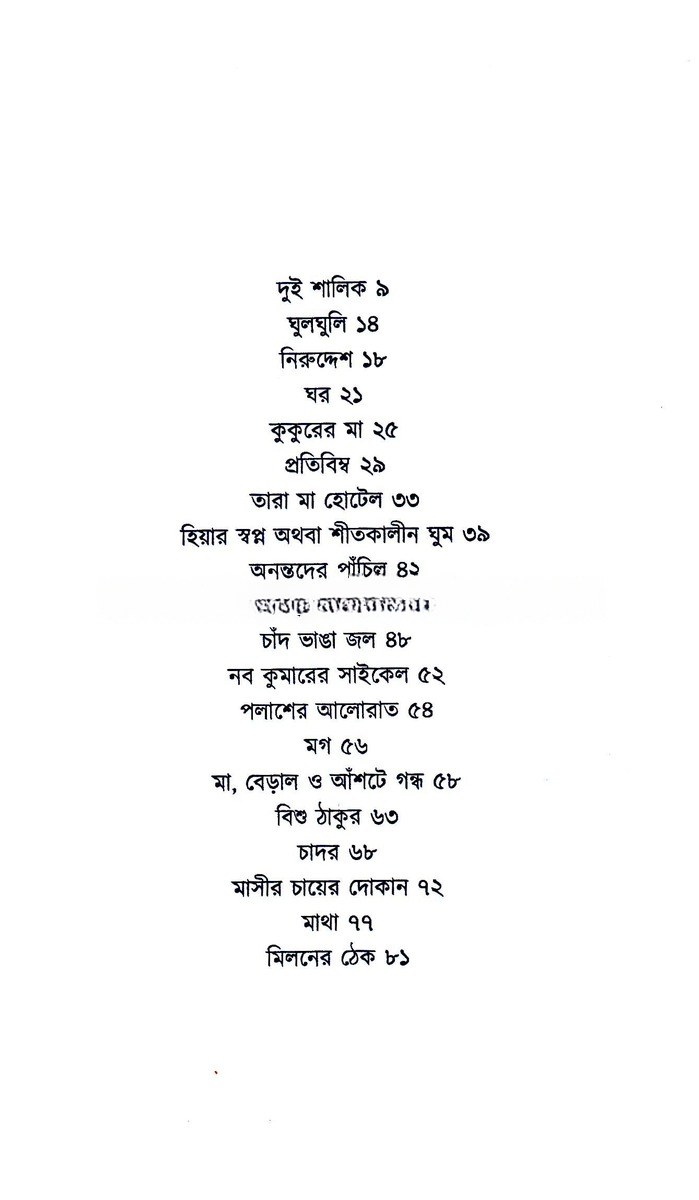 দুই শালিক ৯
ঘুলঘুলি ১৪
নিরুদ্দেশ ১৮
ঘর ২১
কুকুরের মা ২৫
প্রতিবিম্ব ২৯
তারা মা হোটেল ৩৩
হিয়ার স্বপ্ন অথবা শীতকালীন ঘুম ৩৯
অনন্তদের পাঁচিল ৪২
চাঁদ ভাঙা জল ৪৮
নব কুমারের সাইকেল ৫২
পলাশের আলোরাত ৫৪
মগ ৫৬
মা, বেড়াল ও আঁশটে গন্ধ ৫৮
বিশু ঠাকুর ৬৩
চাদর ৬৮
মাসীর চায়ের দোকান ৭২
মাথা ৭৭
মিলনের ঠেক ৮১